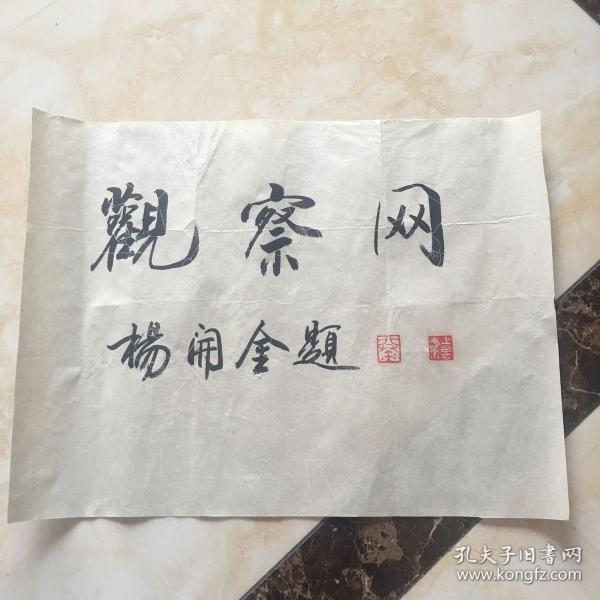 觀察网
楊開金題
孔夫子旧書网
www.kongfz.com